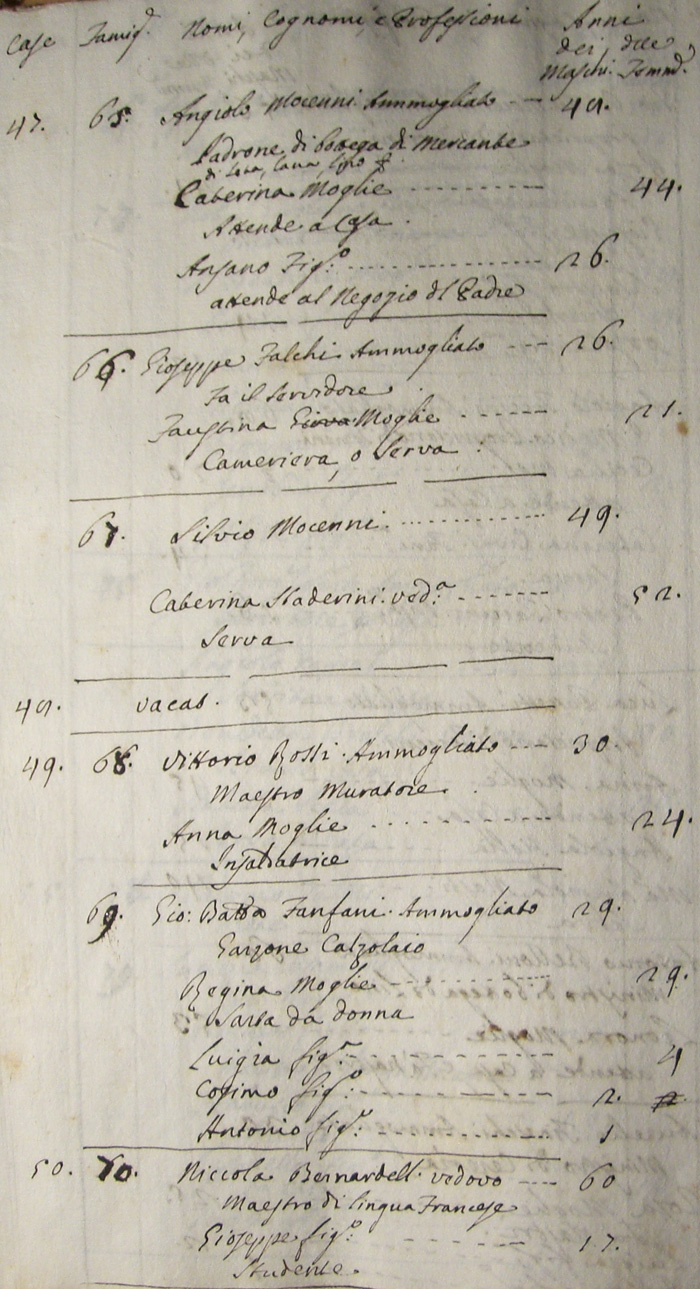 Case Famig.e Nomi, Cognomi, e Professioni Anni
dei delle
Maschi. Femm.e
47. 65. Angiolo Mocenni Ammogliato --- 48.
Padrone di bottega di Mercante
di Seta, lana, lino
Caterina Moglie ---------- 44.
Attende a Casa.
Ansano Fig.o ---------- 26.
attende al Negozio del Padre
66. Gioseppe Falchi Ammogliato --- 26.
Fa il Servidore
Faustina Moglie ------ 21.
Cameriera, o Serva.
67. Silvio Mocenni ---------- 49.
Caterina Staderini ved.a ------- 52.
Serva
48. vacat.
49. 68. Vittorio Rossi Ammogliato --- 30.
Maestro Muratore.
Anna Moglie ---------- 24.
69. Gio: Batta Fanfani Ammogliato 29.
Garzone Calzolaio
Regina Moglie ---------- 29.
Sarta da donna
Luigia fig.a ---------- 4
Cosimo fig.o ---------- 2.
Antonio fig.o ---------- 1
50. 70. Niccola Bernardell. vedovo --- 60
Maestro di lingua Francese
Gioseppe fig.o ------ 17.
Studente.